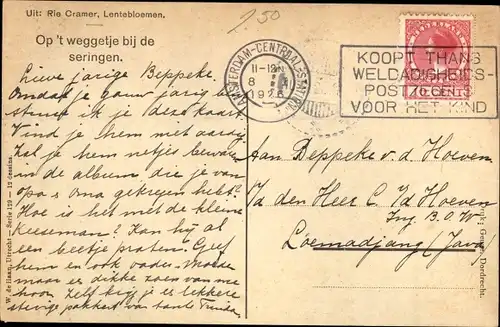 Uit: Rie Cramer, Lentebloemen.
Op 't weggetje bij de
seringen.
7.50
AMSTERDAM-CENTRAALSTATION
11-12
8
1926
KOOPT THANS
WELDADIGHEIDS-
POSTZEGELS
VOOR HET KIND
Lieve jarige Beppeke.
Omdat je gauw jarig bent
stuur ik je deze kaart
Vind je hem niet aardig
Zal je hem netjes bewaren
in de album die je van
opa & oma gekregen hebt?
Hoe is het met de kleine
Keeseman? Kan hij al
een beetje praten? Geef
hem en ook vader & moeder
maar eens dikke zoen van me
hoor. Zelf krijg je lekkere
stevige pakkert van tante
Aan Beppeke v. d. Hoeven
p/a den Heer C. v/d Hoeven
Ing. B.O.W
Loemadjang (Java)
W. de Haan, Utrecht — Serie 129 — 12 dessins.
Druk: Geuze, Dordrecht.